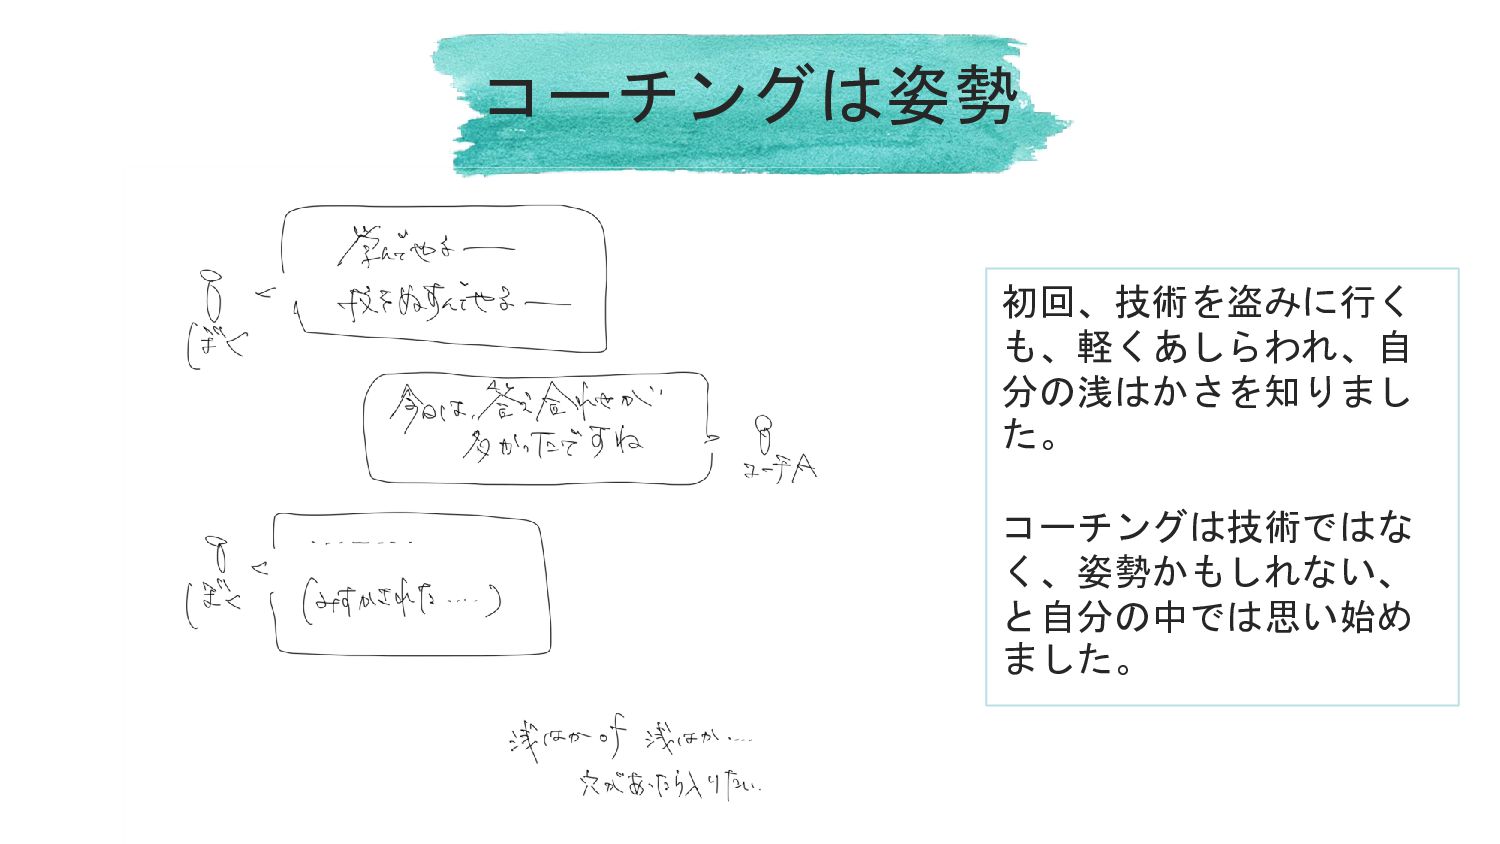 コーチングは姿勢
学んでやるー
技をぬすんでやるー
ぼく
今日は、答え合わせが
多かったですね
コーチA
..........
(みすかされた....)
ぼく
浅はか of 浅はか....
穴があったら入りたい.
初回、技術を盗みに行く
も、軽くあしらわれ、自
分の浅はかさを知りまし
た。
コーチングは技術ではな
く、姿勢かもしれない、
と自分の中では思い始め
ました。